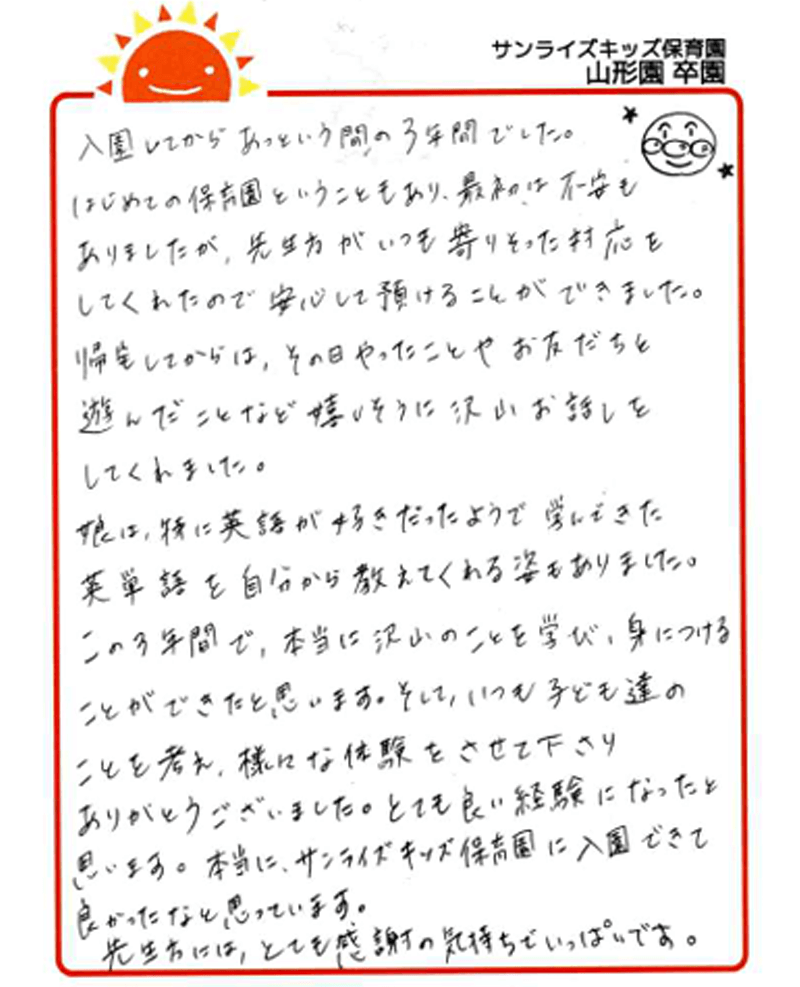 サンライズキッズ保育園
山形園 卒園
入園してからあっという間の3年間でした。
はじめての保育園ということもあり、最初は不安も
ありましたが、先生方がいつも寄りそった対応を
してくれたので安心して預けることができました。
帰宅してからは、その日やったことやお友だちと
遊んだことなど嬉しそうに沢山お話しを
してくれました。
娘は、特に英語が好きだったようで学んできた
英単語を自分から教えてくれる姿もありました。
この3年間で、本当に沢山のことを学び、身につける
ことができたと思います。そして、いつも子ども達の
ことを考え、様々な体験をさせて下さり
ありがとうございました。とても良い経験になったと
思います。本当に、サンライズキッズ保育園に入園できて
良かったなと思っています。
先生方には、とても感謝の気持ちでいっぱいです。